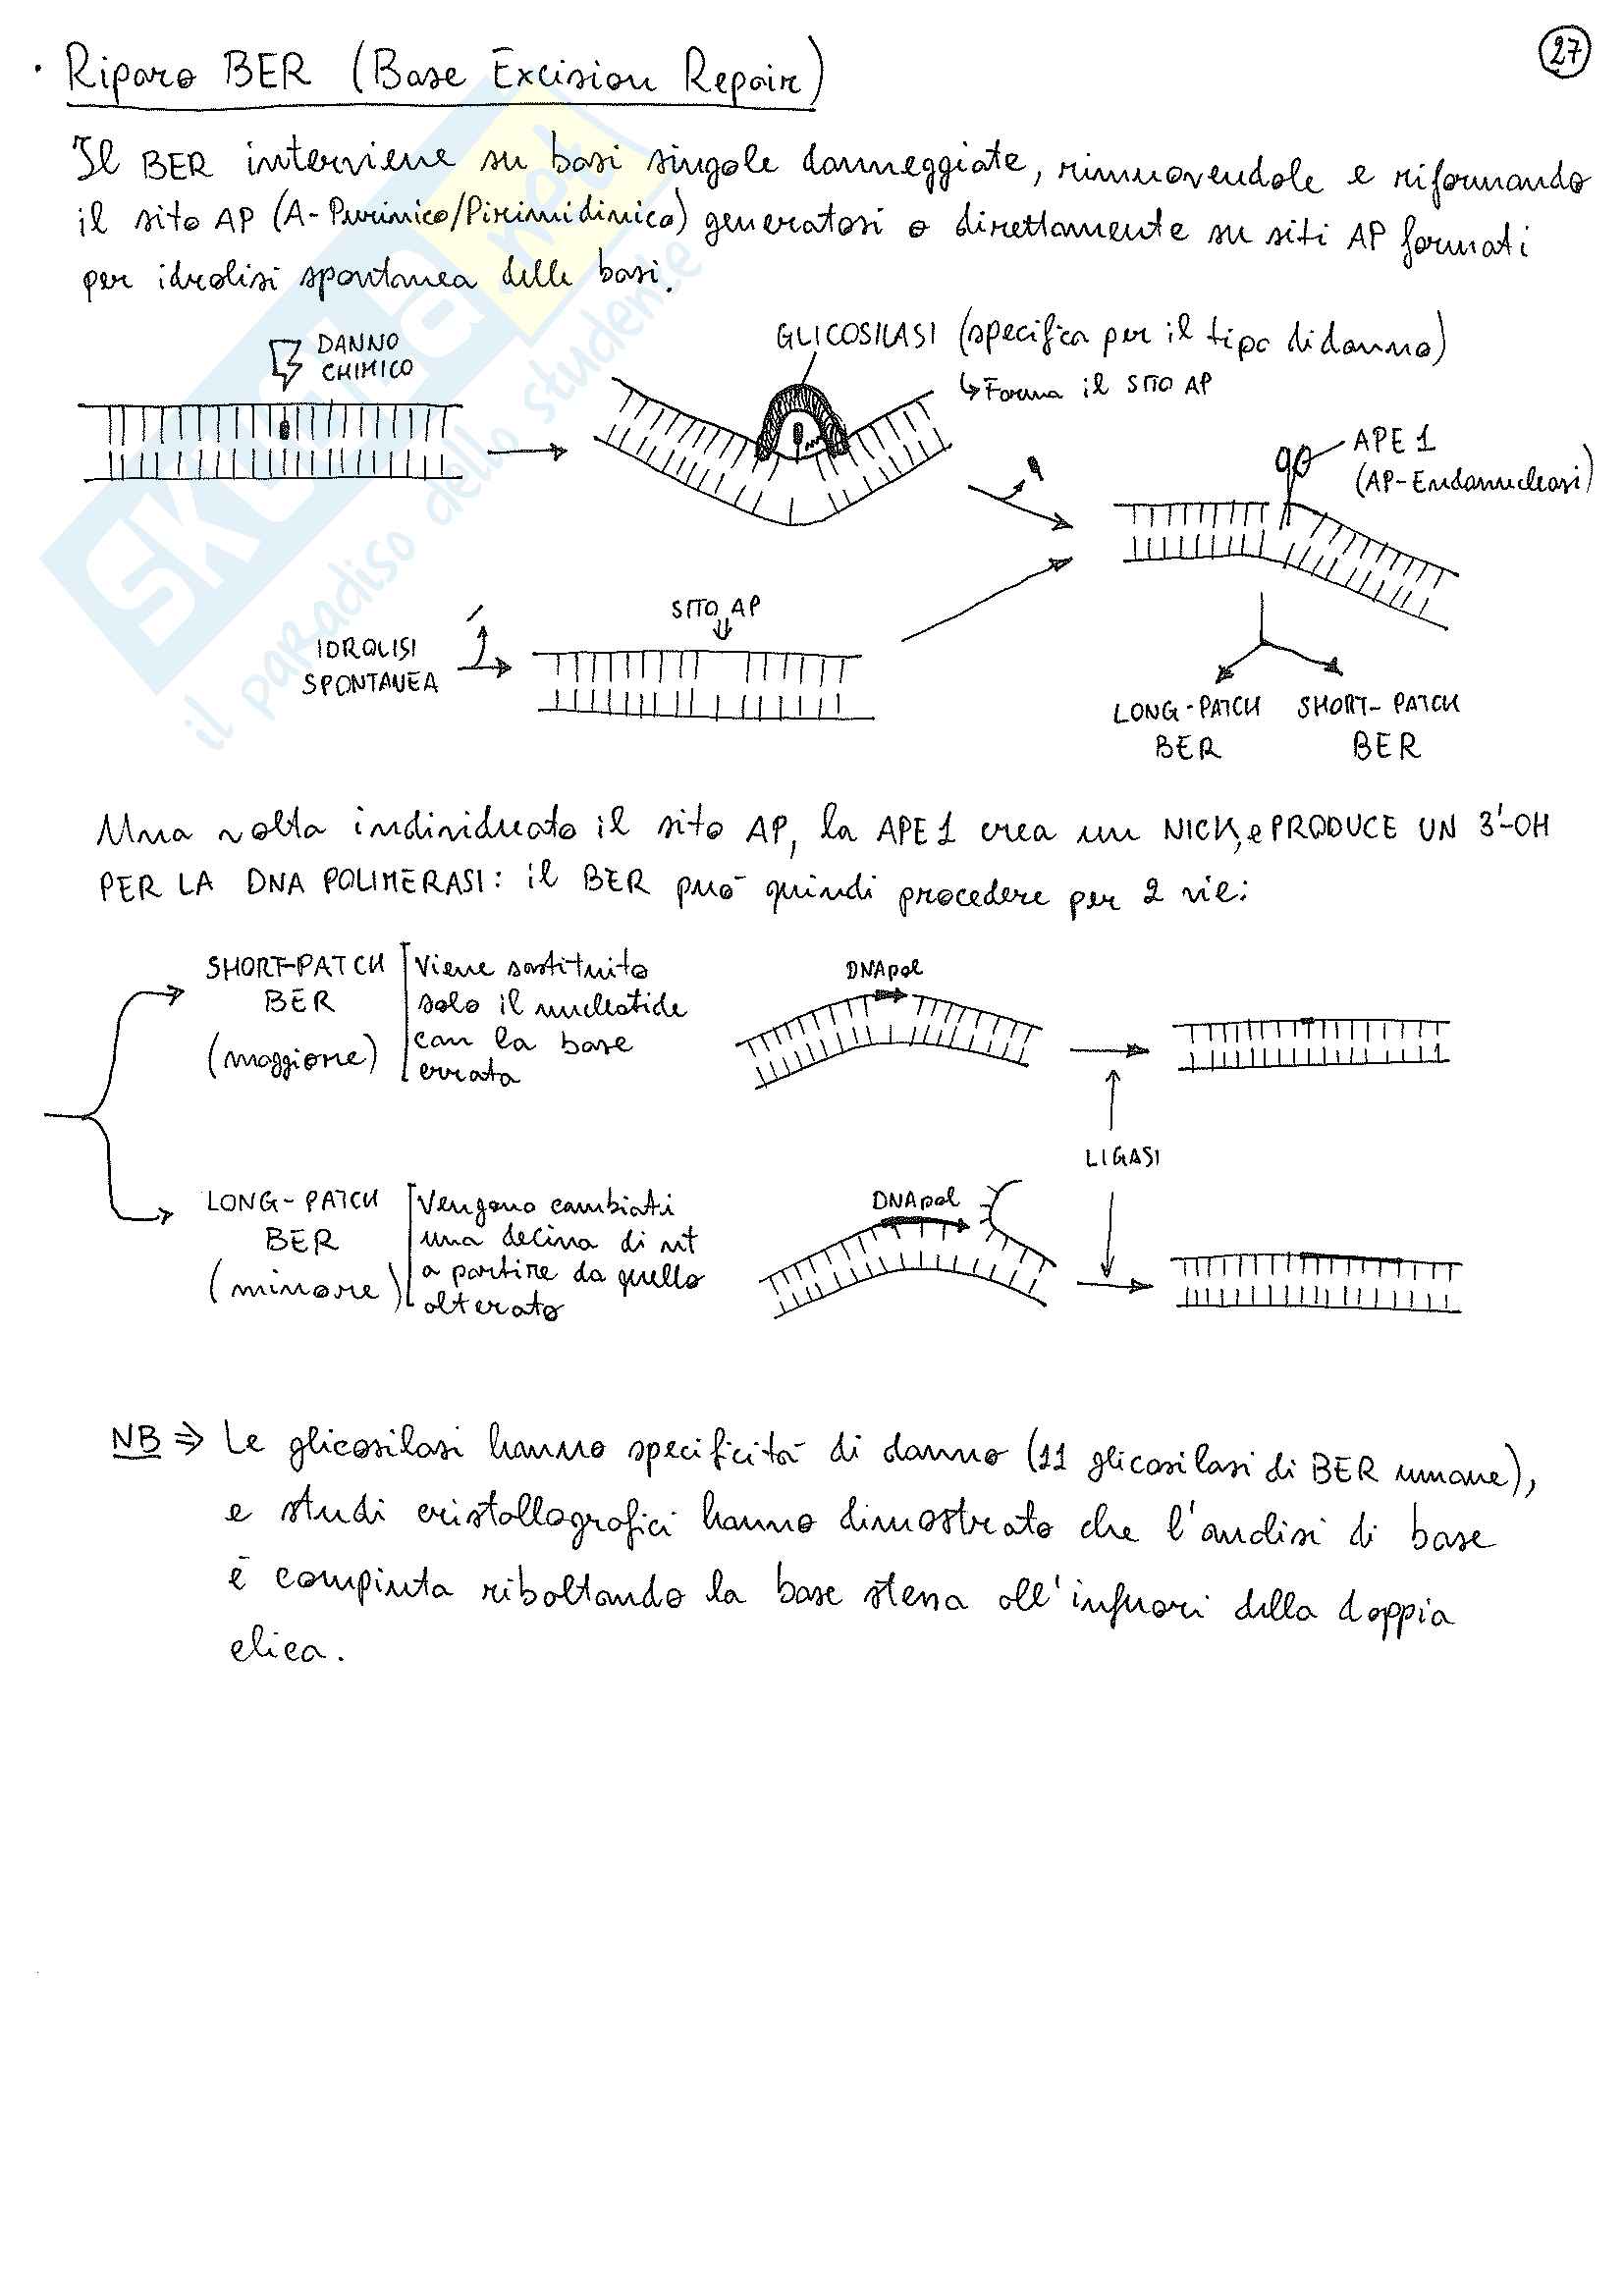 27
· Riparo BER (Base Excision Repair)
Il BER interviene su basi singole danneggiate, rimuovendole e riformando
il sito AP (A-Purinico/Pirimidinico) generatosi o direttamente su siti AP formati
per idrolisi spontanea delle basi.
DANNO
CHIMICO
GLICOSILASI (specifica per il tipo di danno)
↳ Forma il SITO AP
APE 1
(AP-Endonucleasi)
SITO AP
IDROLISI
SPONTANEA
LONG-PATCH
BER
SHORT-PATCH
BER
Una volta individuato il sito AP, la APE1 crea un NICK, e PRODUCE UN 3'-OH
PER LA DNA POLIMERASI: il BER può quindi procedere per 2 vie:
SHORT-PATCH
BER
(maggiore)
Viene sostituito
solo il nucleotide
con la base
errata
DNApol
LIGASI
LONG-PATCH
BER
(minore)
Vengono cambiati
una decina di nt
a partire da quello
alterato
DNApol
NB ⇒ Le glicosilasi hanno specificità di danno (11 glicosilasi di BER umane),
e studi cristallografici hanno dimostrato che l'analisi di base
è compiuta riboltando la base stessa all'infuori della doppia
elica.
skuola.net
il paradiso dello studente